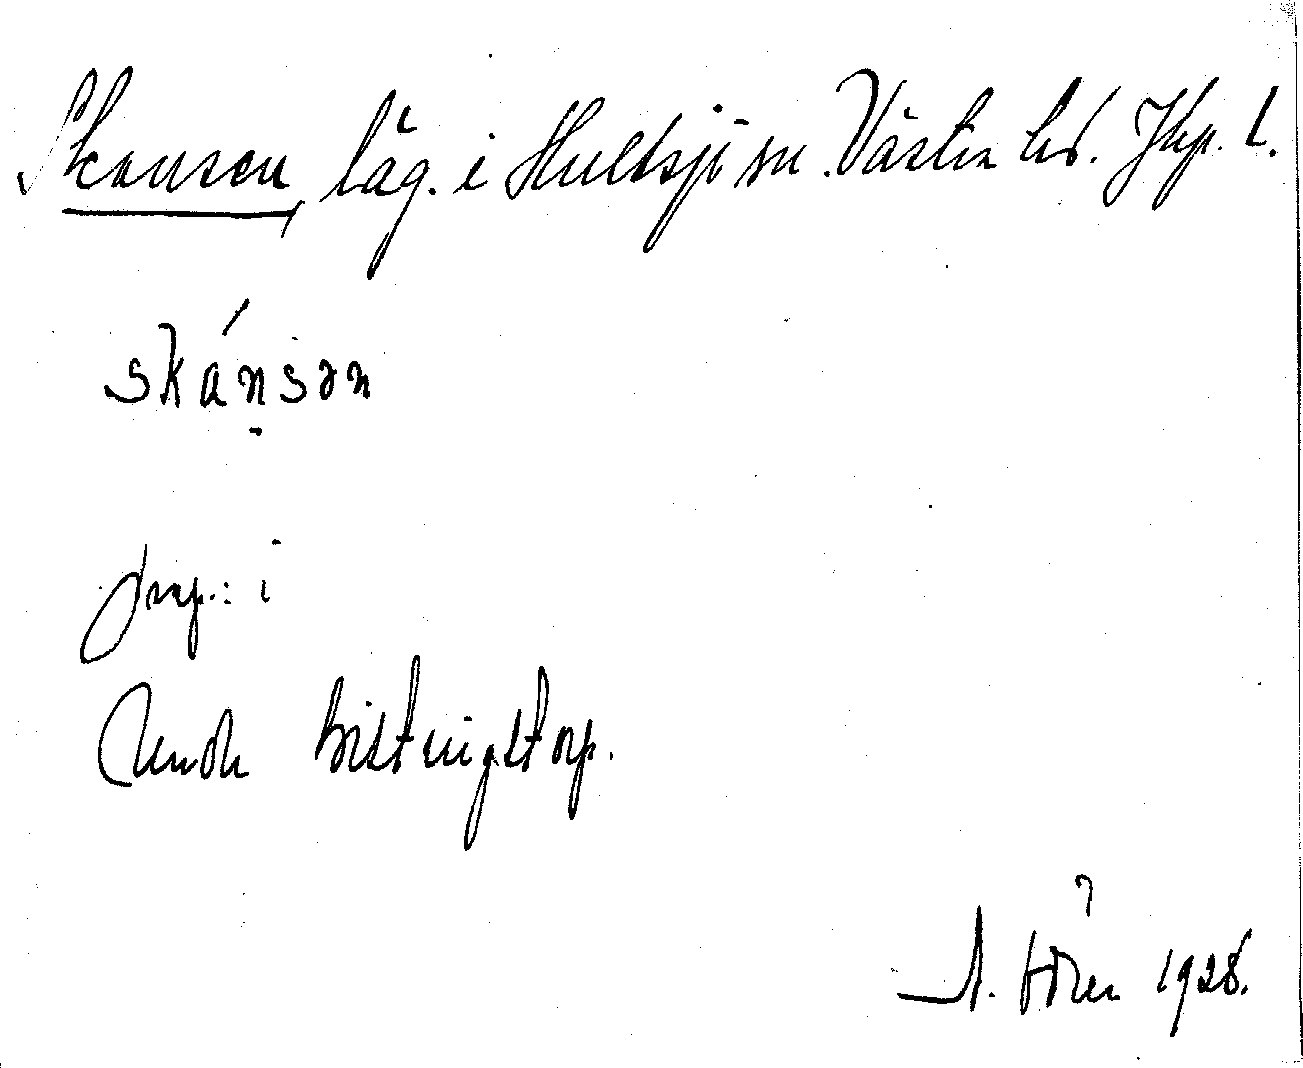 Skansen, läg. i Hultsjö sn. Västra hd. Jkp. l.
skánsən
prep.: i
Under Bistringstorp.
1928.